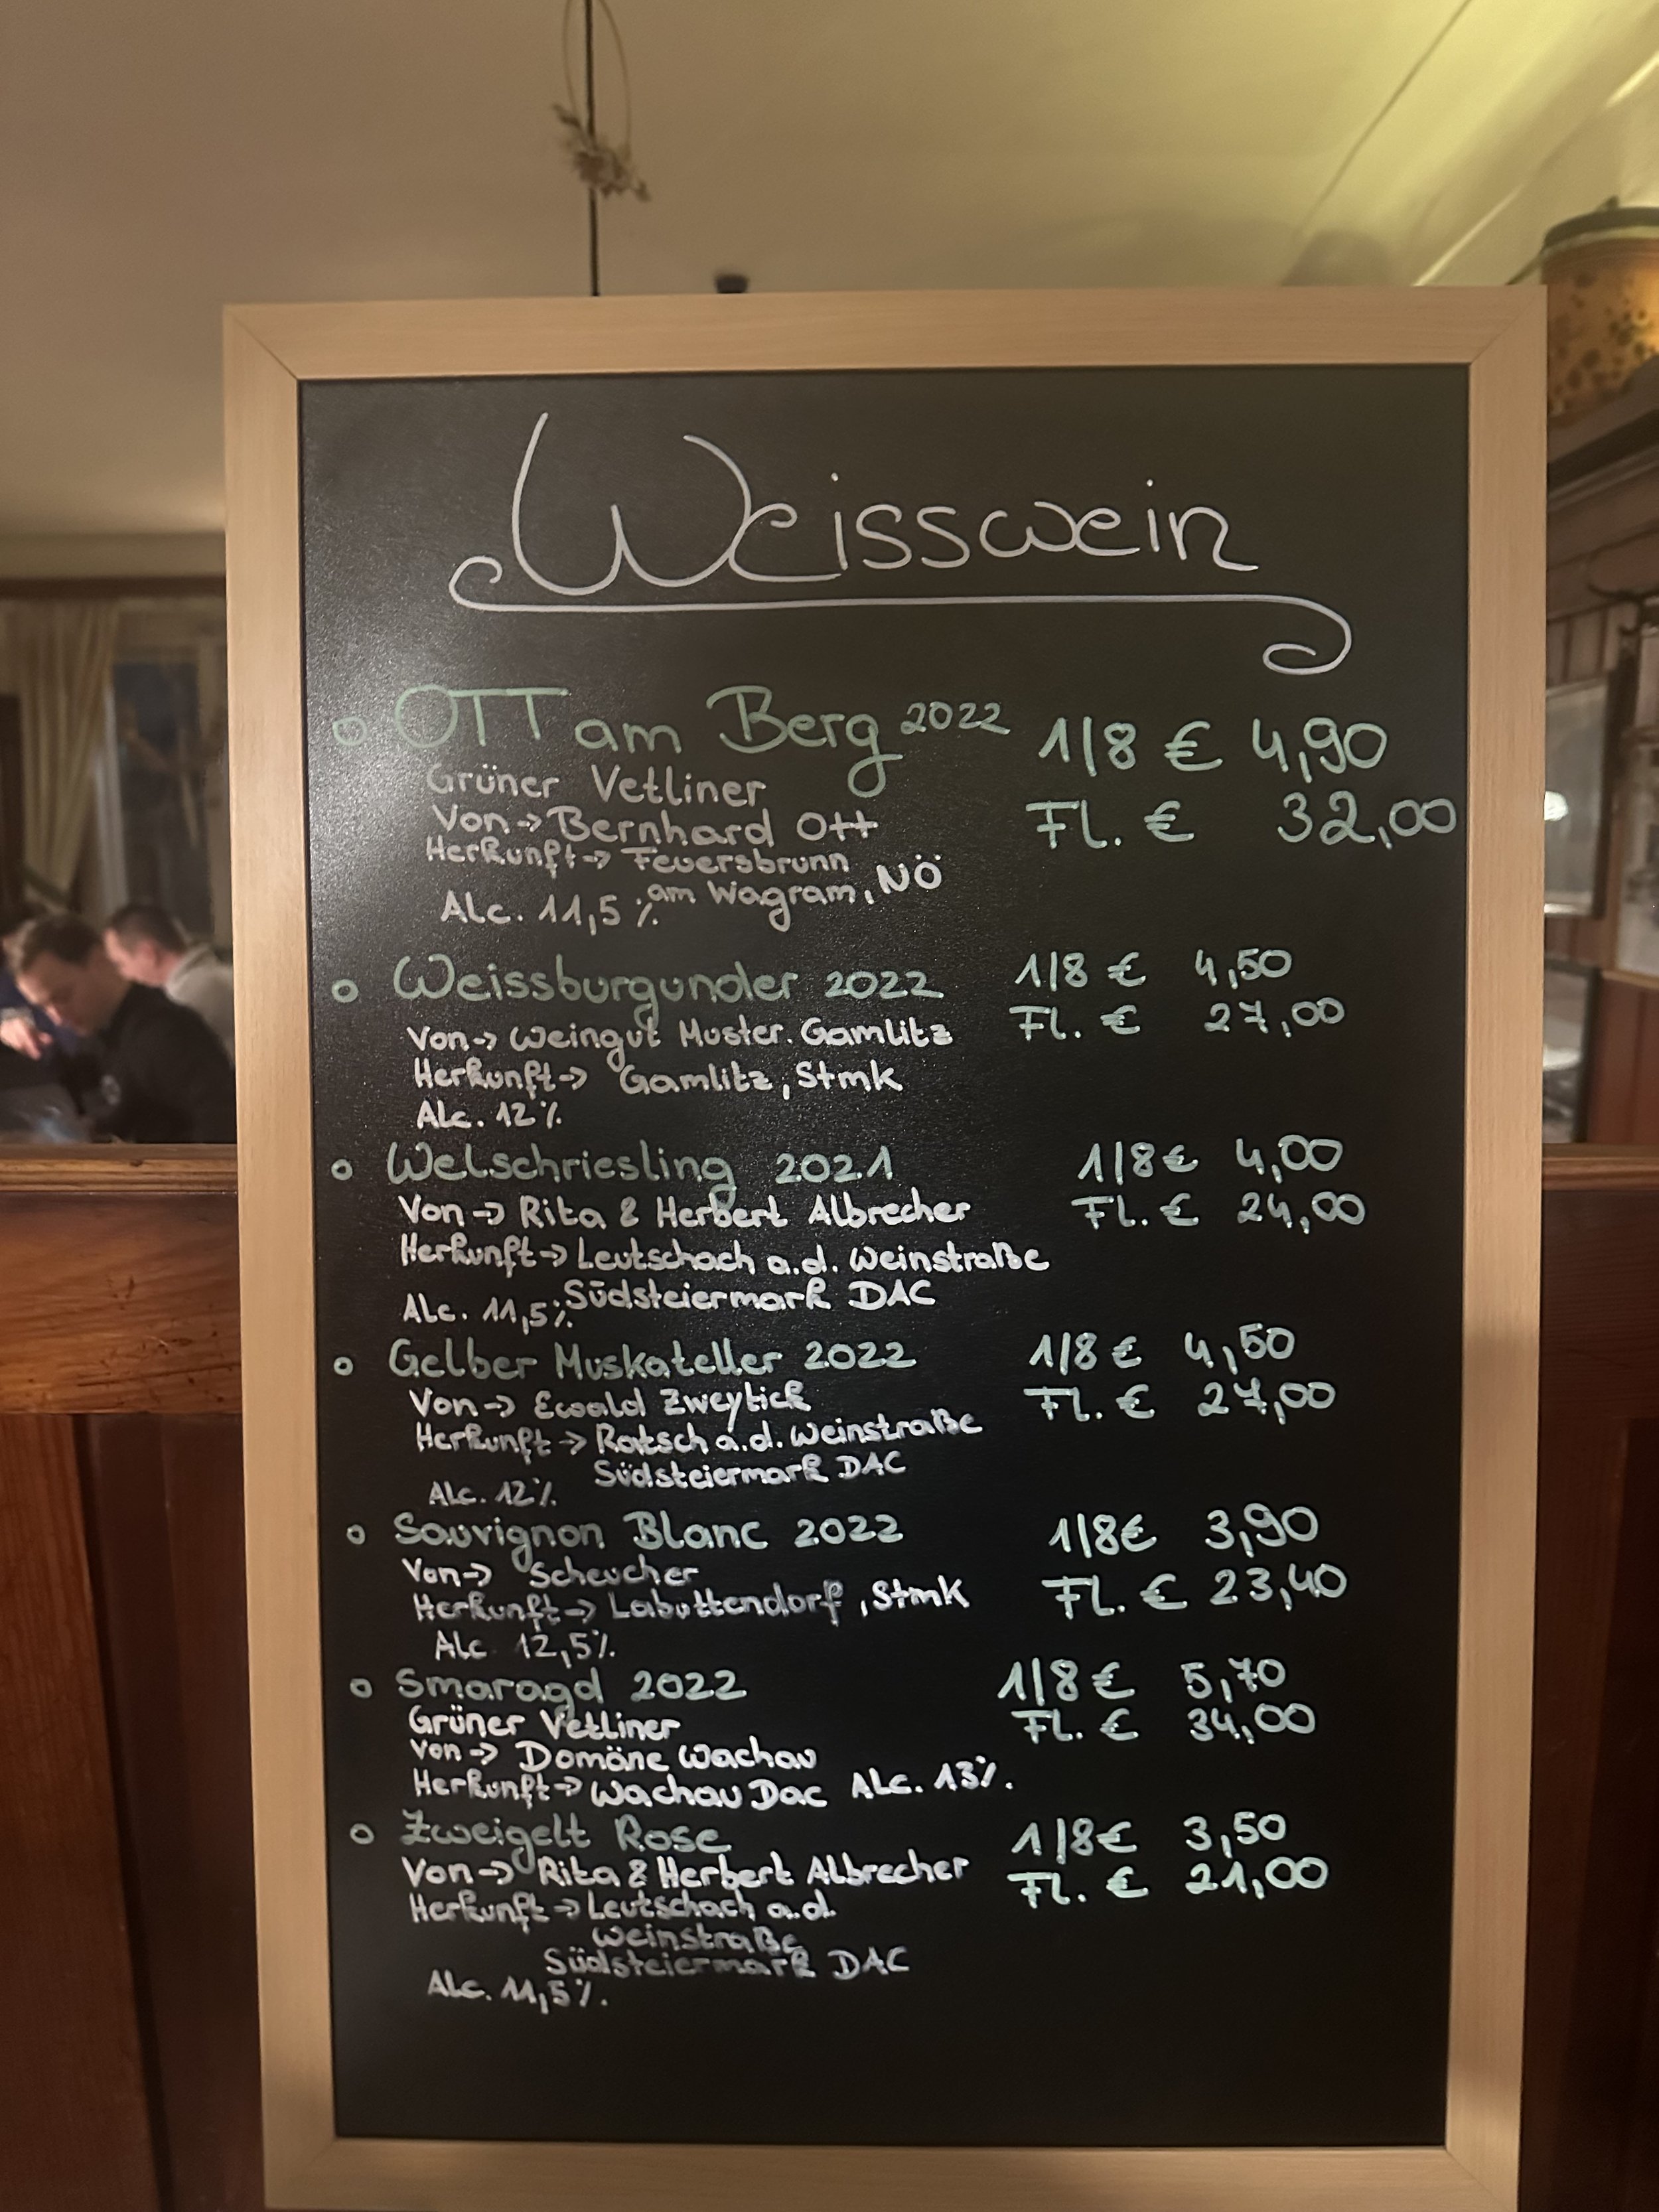 Weisswein
o OTT am Berg 2022 1/8 € 4,90
Grüner Vetliner
Von -> Bernhard Ott Fl. € 32,00
Herkunft -> Feuersbrunn
am Wagram, NÖ
Alc. 11,5 %
o Weissburgunder 2022 1/8 € 4,50
Von -> Weingut Muster. Gamlitz Fl. € 27,00
Herkunft -> Gamlitz, Stmk
Alc. 12 %
o Welschriesling 2021 1/8 € 4,00
Von -> Rita & Herbert Albrecher Fl. € 24,00
Herkunft -> Leutschach a.d. Weinstraße
Südsteiermark DAC
Alc. 11,5 %
o Gelber Muskateller 2022 1/8 € 4,50
Von -> Ewald Zweytick Fl. € 27,00
Herkunft -> Ratsch a.d. Weinstraße
Südsteiermark DAC
Alc. 12 %
o Sauvignon Blanc 2022 1/8 € 3,90
Von -> Scheucher Fl. € 23,40
Herkunft -> Labuttendorf, Stmk
Alc 12,5 %
o Smaragd 2022 1/8 € 5,70
Grüner Vetliner Fl. € 34,00
Von -> Domäne Wachau
Herkunft -> Wachau Dac Alc. 13 %.
o Zweigelt Rose 1/8 € 3,50
Von -> Rita & Herbert Albrecher Fl. € 21,00
Herkunft -> Leutschach a.d.
Weinstraße
Südsteiermark DAC
Alc. 11,5 %.